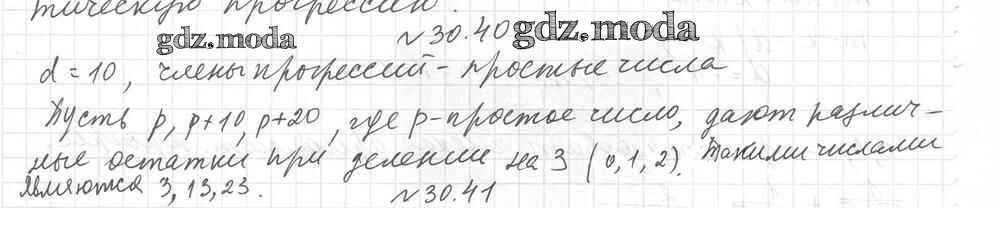 тическую прогрессию.
№30.40 gdz.moda
gdz.moda
d=10, члены прогрессий - простые числа
Пусть p, p+10, p+20, где p-простое число, дают различ-
ные остатки при делении на 3 (0,1,2). Такими числами
являются 3, 13, 23.
№30.41